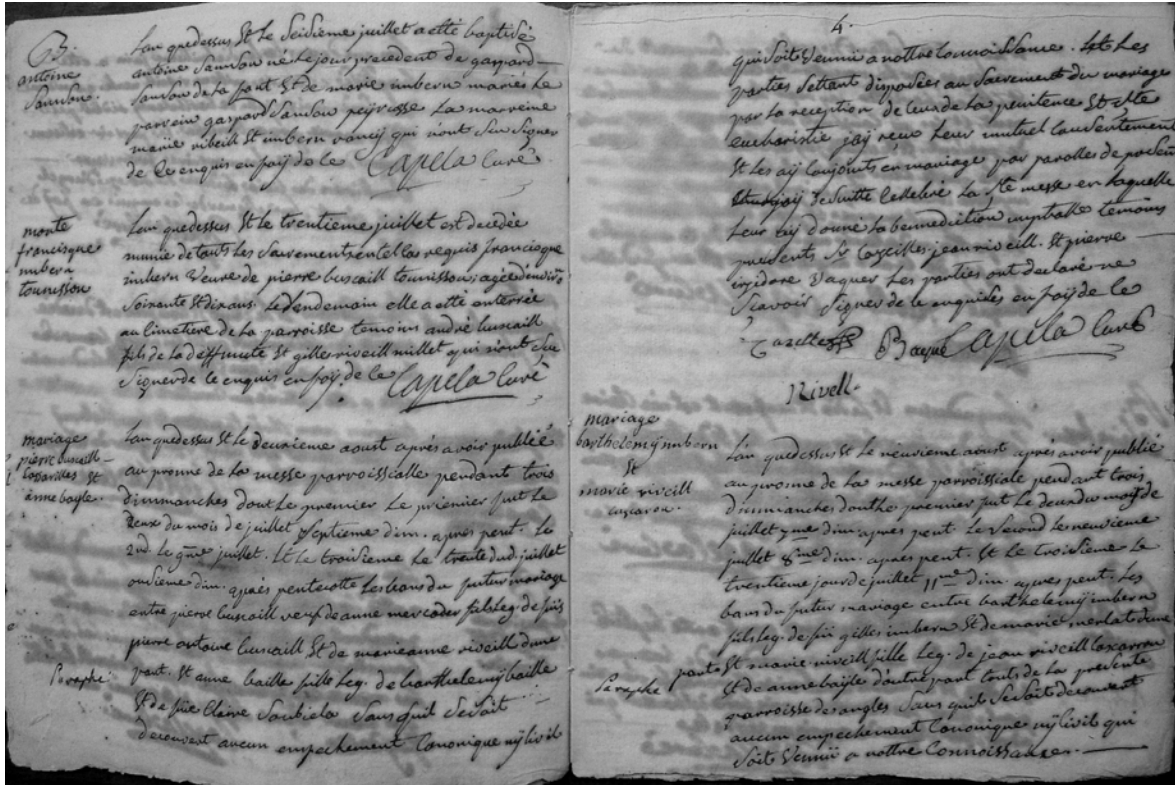 B.
antoine
Samson.
Lan quedessus Et le Seisieme juillet a etté baptisé
antoine Samson né le jour precedent de gaspard
Samson de la font Et de marie imbern mariés le
parrein gaspard Samson peyrusse la marreine
marie riveill Et imbern qui n'ont Sceu Signer
de ce enquis en foÿ de ce Capela Curé.
morte
francisque
imbern
tounissou
Lan quedessus Et le trentieme juillet est decedée
munie de touts les Sacrements entel cas requis francisque
imbern veuve de pierre buscaill tounissou, agée denviro
Soixante Et dix ans. le lendemain elle a etté enterrée
au Cimetiere de la parroisse temoins andré buscaill
fils de la deffunte Et gilles riveill millet qui n'ont Sceu
Signer de ce enquis en foÿ de ce Capela Curé
mariage
pierre buscaill
Et
anne bayle.
Lan quedessus Et le deuxieme aoust aprés avoir publié
au prosne de la messe parroissialle pendant trois
dimmanches dont le premier le premier fut le
deux du mois de juillet Septieme dim. aprés pent. le
2nd. le 9me juillet. Et le troisieme le trente dud. juillet
onsieme dim. aprés pentecotte les bans du futur mariage
entre pierre buscaill veuf de anne mercader fils leg. de fûs
pierre antoine buscaill Et de marieanne riveill dune
Paraphé
part. Et anne baille fille leg. de barthelemÿ baille
Et de fûe Claire Soubiela Sans quil Se Soit
decouvert aucun empechement Canonique nÿ Civil
4.
qui Soit venuû a nottre Connoissance. Et les
parties Settant disposées au Sacrement du mariage
par la reception de ceux de la penitence Et
eucharistie jaÿ receu leur mutuel Consentement
Et les aÿ Conjoints en mariage par parolles de present
Et jaÿ de Suitte Cellebré la Ste messe en laquelle
leur aÿ donné la benediction nuptialle temoins
presents Sr Cazeilles, jean riveill. Et pierre
izidore vaquer les parties ont declaré ne
Scavoir Signer de ce enquises en foÿ de ce
Cazelles Capela Curé
Rivell.
mariage
barthelemÿ imbern
Et
marie riveill
Lan quedessus Et le neuvieme aoust aprés avoir publié
au prosne de la messe parroissiale pendant trois
dimmanches dont le premier fut le deux du mois de
juillet 7me dim. aprés pent. le Second le neuvieme
juillet 8me dim. aprés pent. Et le troisieme le
trentieme jour de juillet 11me dim. aprés pent. les
bans du futur mariage entre barthelemÿ imbern
fils leg. de fûs gilles imbern Et de marie merlat dune
part Et marie riveill fille leg. de jean riveill
Paraphé
Et de anne bayle dautre part touts de la presente
parroisse de angles Sans quil Se Soit decouvert
aucun empechement Canonique nÿ Civil qui
Soit venuû a nottre Connoissance.